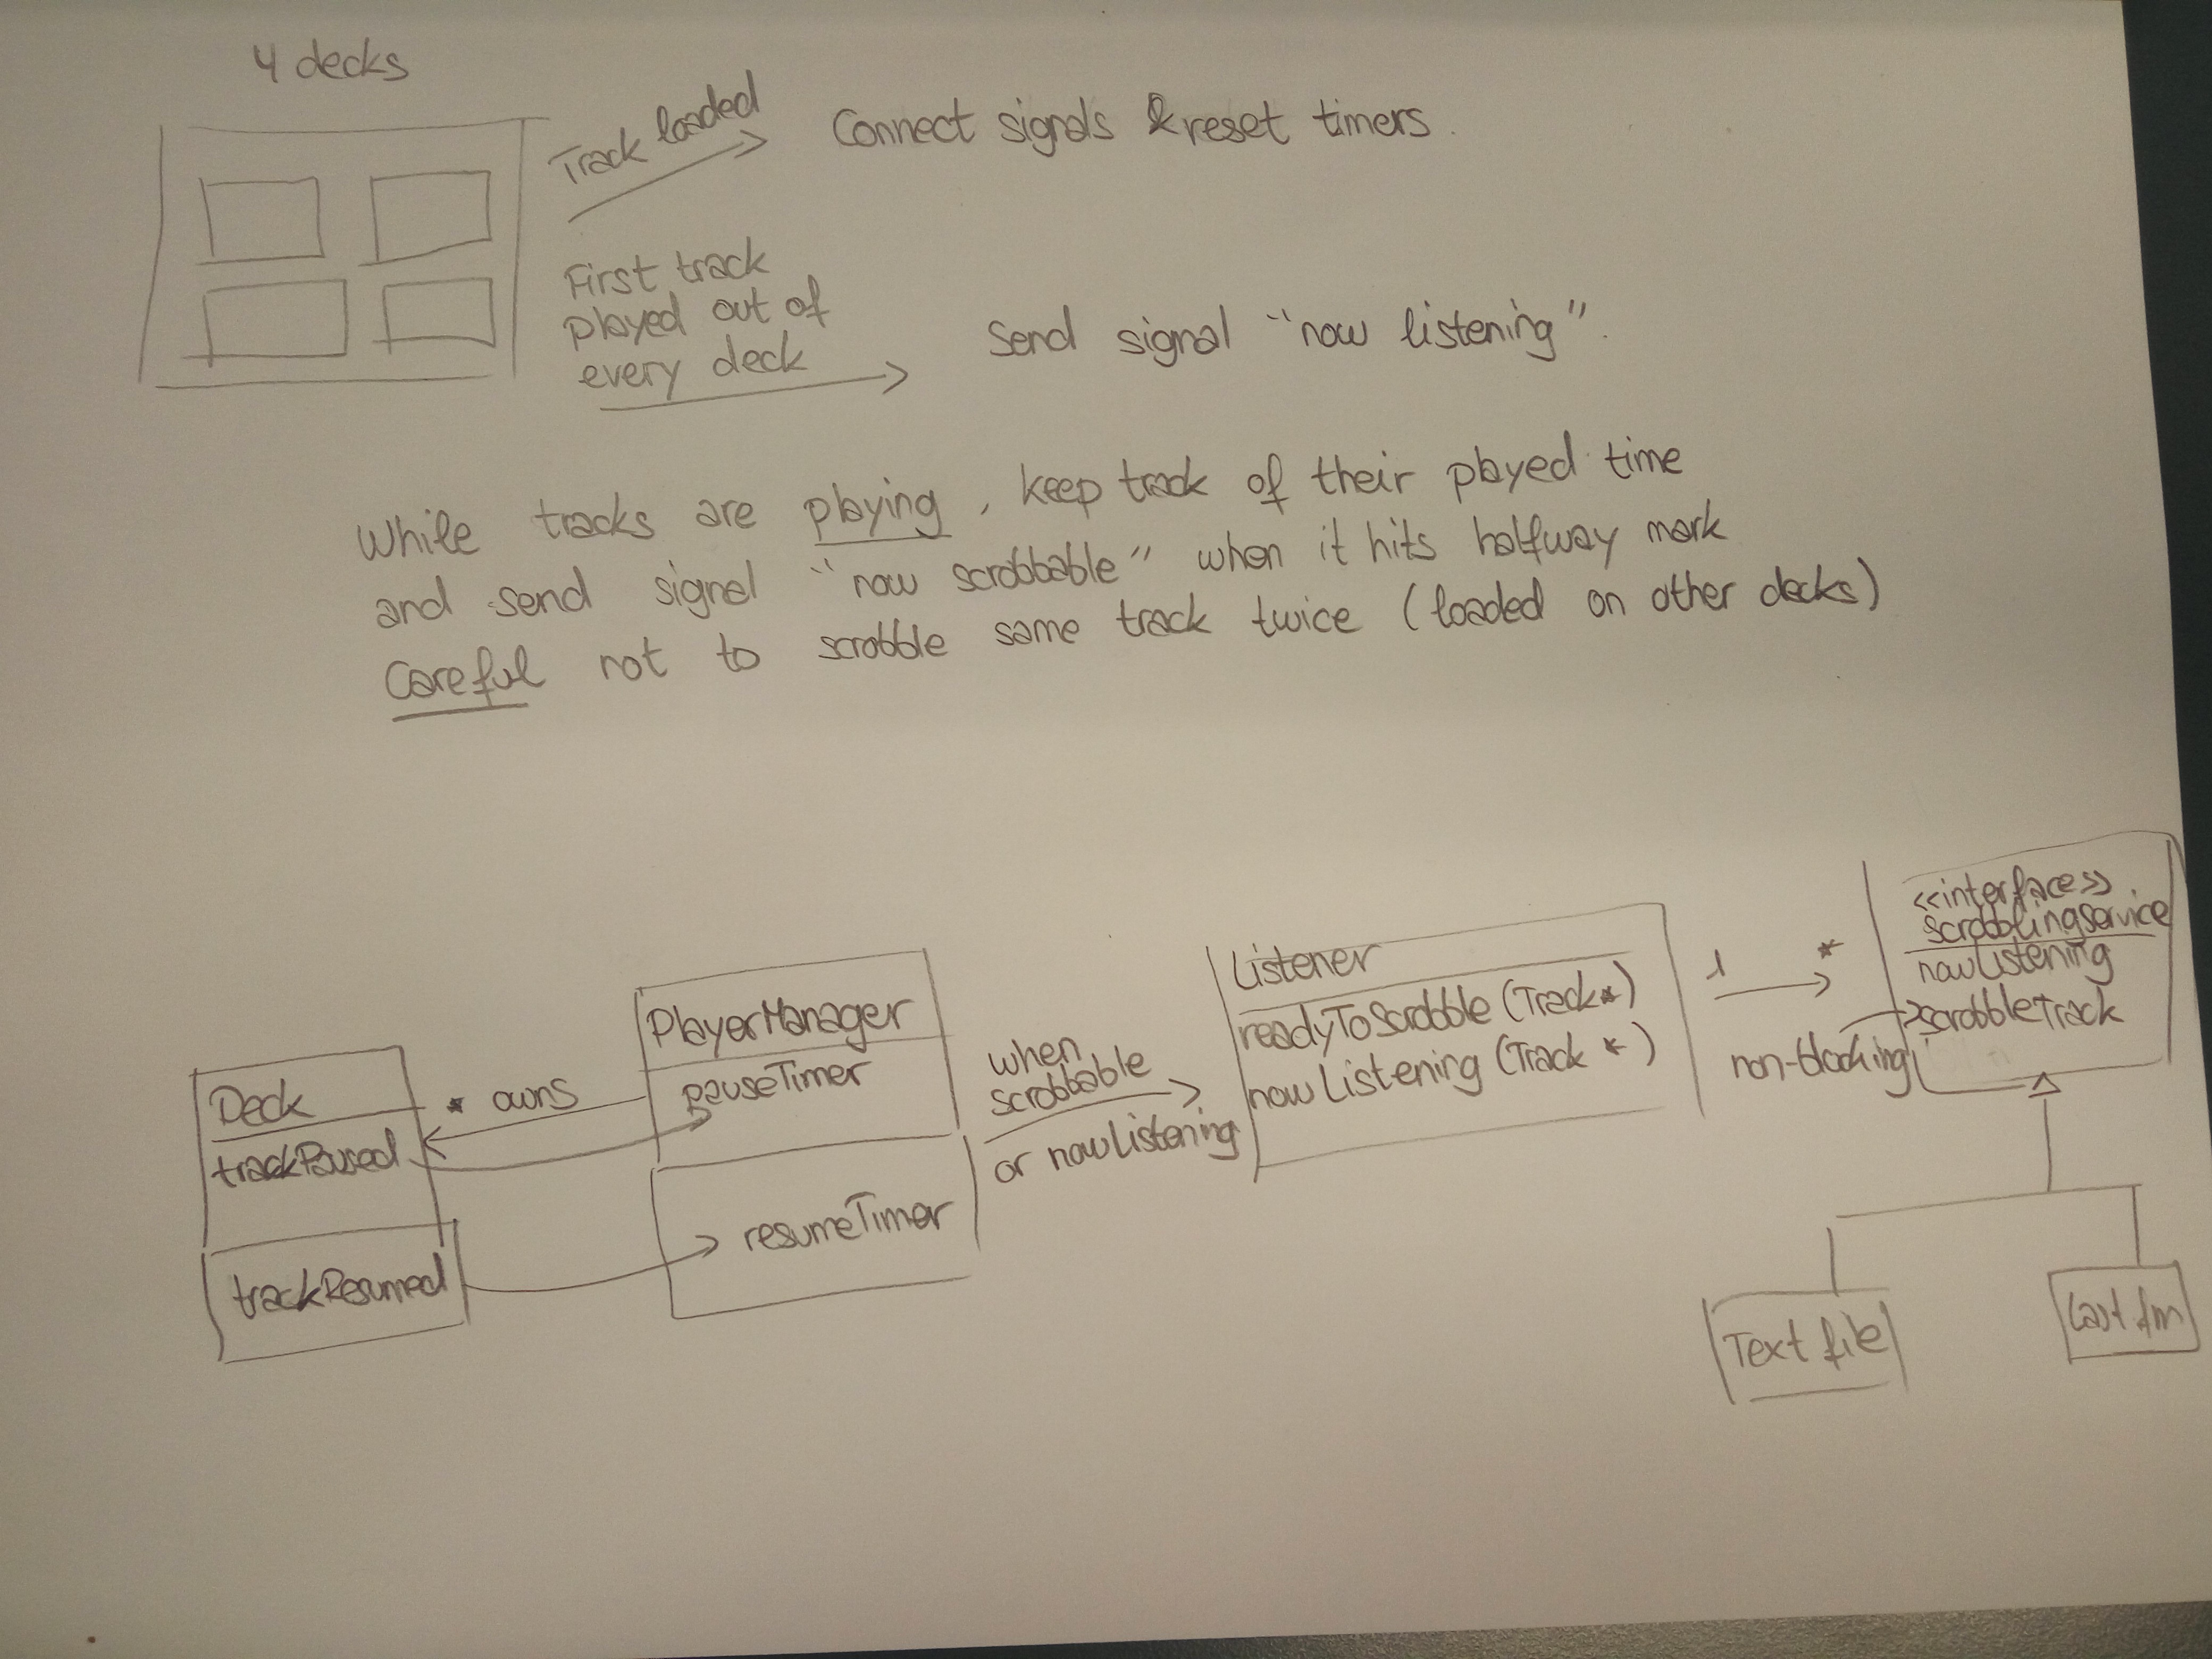 4 decks
Track loaded
Connect signals & reset timers.
First track
played out of
every deck
Send signal "now listening".
While tracks are playing, keep track of their played time
and send signal "now scrobbable" when it hits halfway mark
Careful not to scrobble same track twice (loaded on other decks)
Deck
trackPaused
trackResumed
* owns
PlayerManager
pauseTimer
resumeTimer
when
scrobbable
or nowListening
Listener
readyToScrobble (Track*)
nowListening (Track *)
1 *
non-blocking
<<interface>>
scrobblingService
nowListening
scrobbleTrack
Text file
Last fm